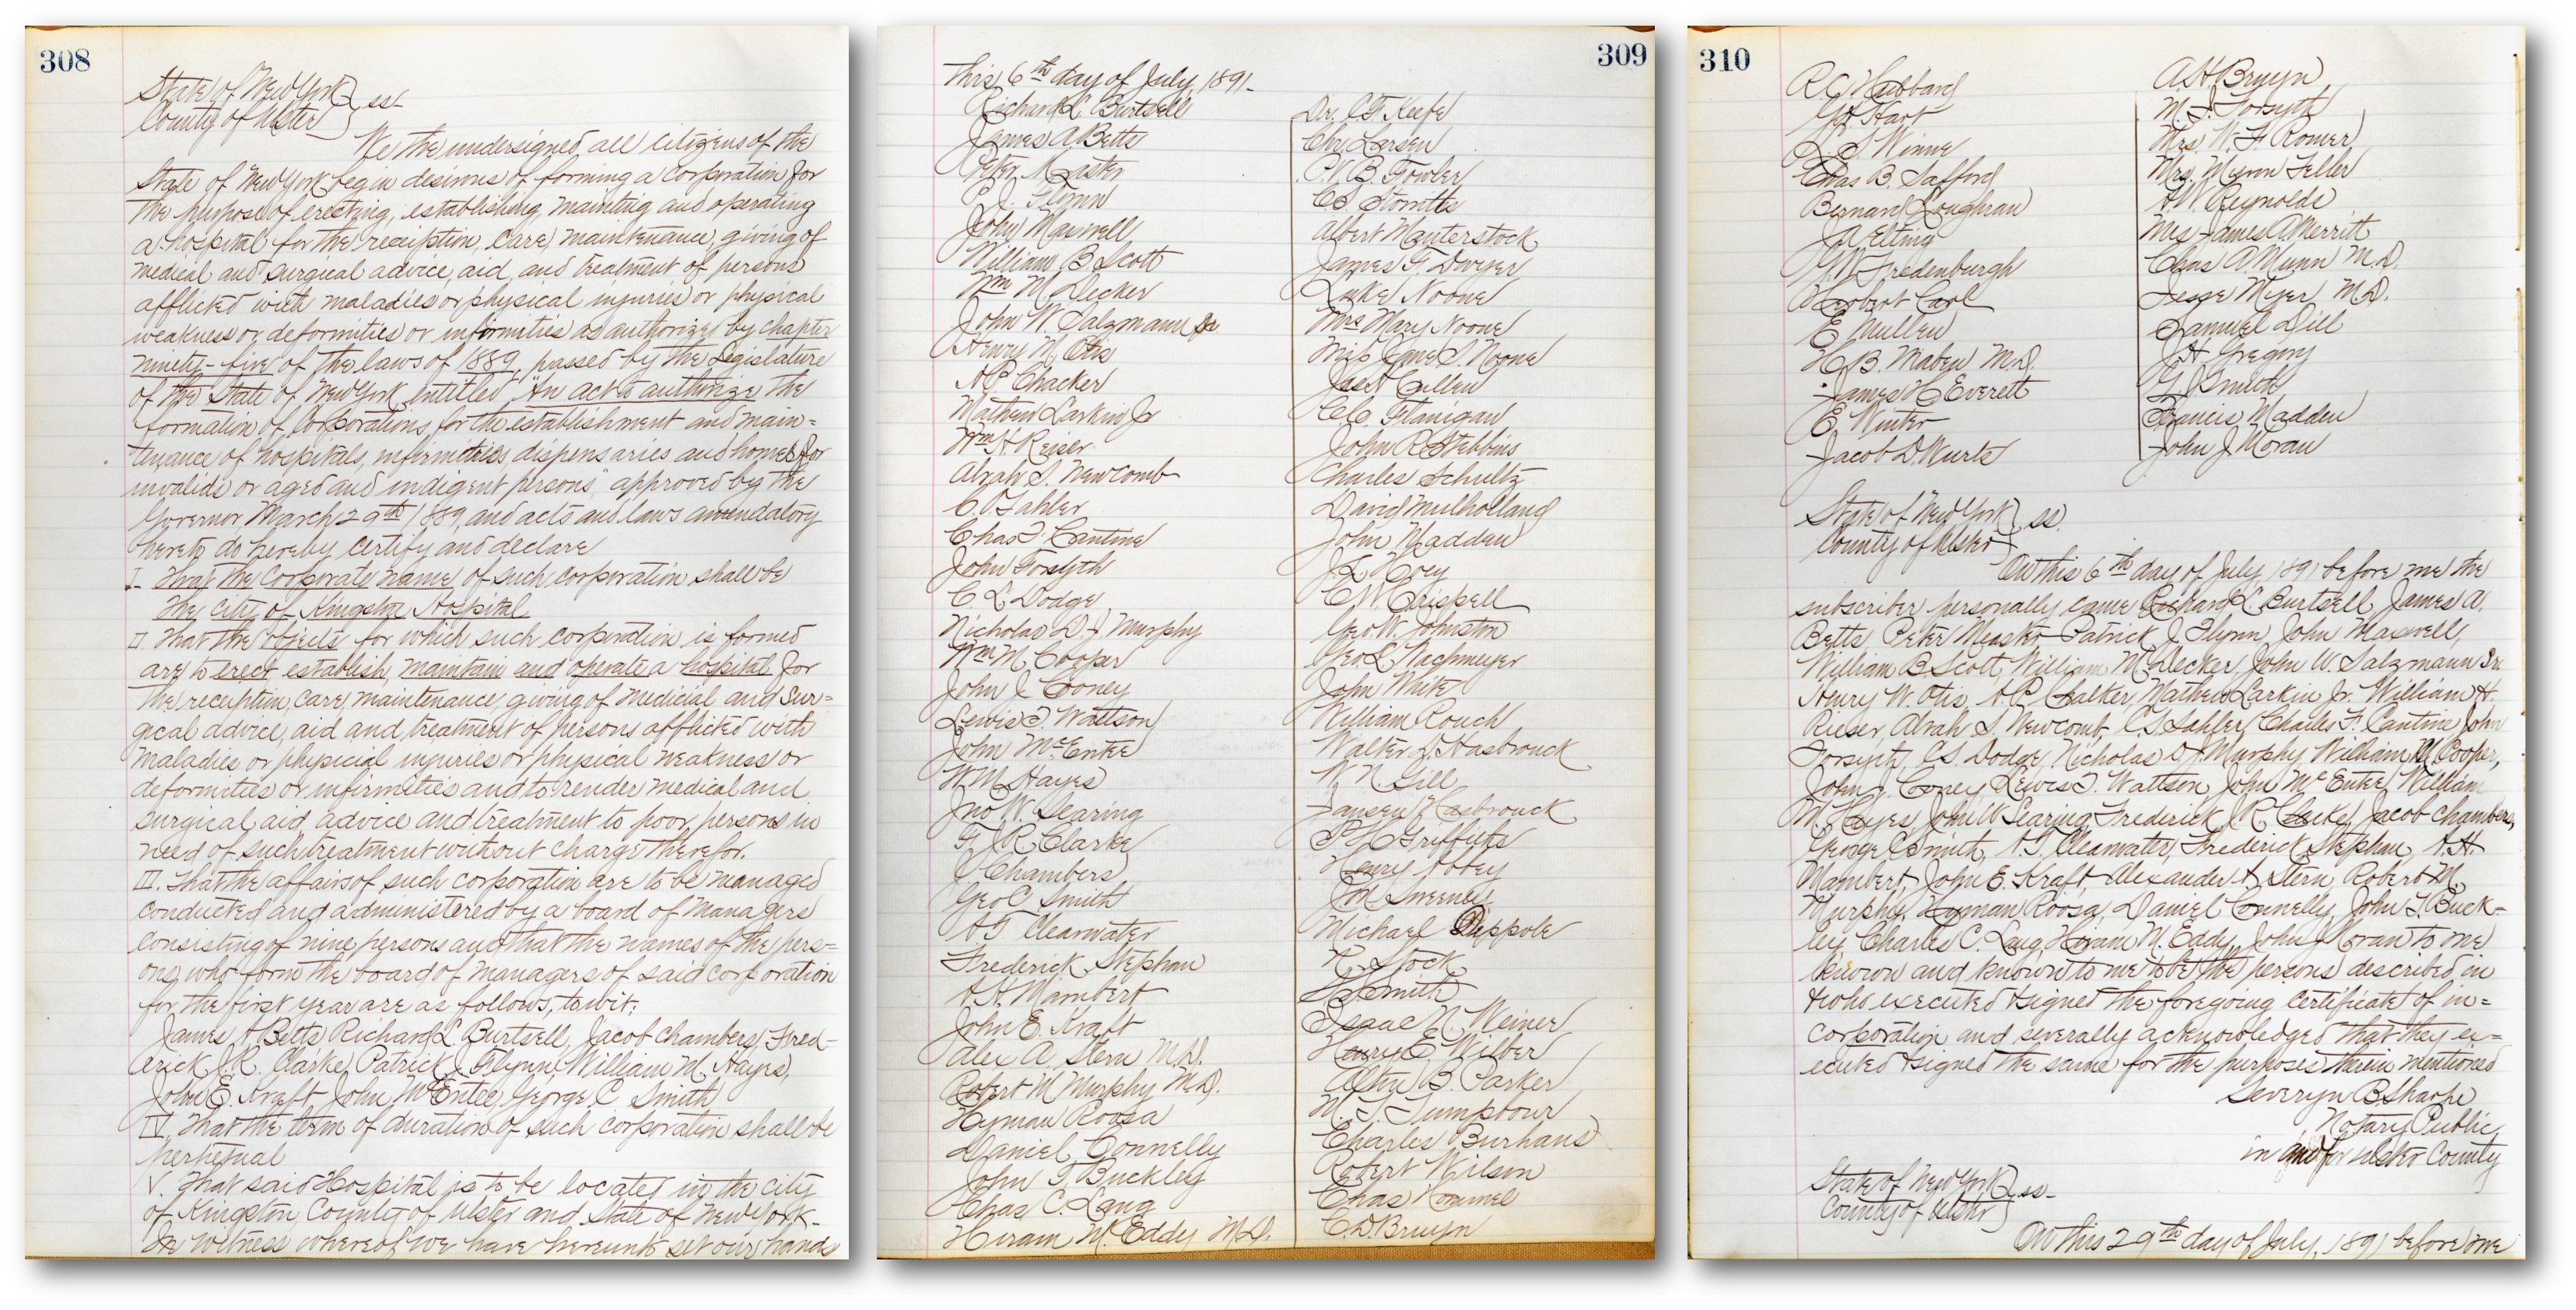 308
State of New York } ss-
County of Ulster }
We the undersigned all citizens of the
State of New York begin desirous of forming a corporation for
the purpose of erecting, establishing, mainting and operating
a hospital for the reception, care, maintenance, giving of
medical and surgical advice, aid, and treatment of persons
afflicted with maladies or physical injuries or physical
weakness or deformities or infirmities as authorized by chapter
ninety-five of the laws of 1889, passed by the Legislature
of the State of New York entitled "An act to authorize the
formation of Corporations for the establishment and main=
tenance of hospitals, infirmities, dispensaries and homes for
invalids or aged and indigent persons" approved by the
Governor March 29th 1889, and acts and laws amendatory
hereto do hereby certify and declare
I- That the Corporate name of such corporation shall be
The City of Kingston Hospital
II. That the objects for which such corporation is formed
are to erect establish, maintain and operate a hospital for
the reception, care, maintenance, giving of medicial and sur=
gical advice, aid and treatment of persons afflicted with
maladies or physicial injuries or physical weakness or
deformities or infirmities and to render medical and
surgical aid advice and treatment to poor persons in
need of such treatment without charge therefor.
III. That the affairs of such corporation are to be managed
conducted and administered by a board of Managers
consisting of nine persons and that the names of the pers=
ons who form the board of managers of said corporation
for the first year are as follows, to wit:
James A Betts Richard L. Burtsell, Jacob Chambers, Fred-
erick J.R. Clarke, Patrick J Flynn, William M. Hayes,
John E. Kraft John McEntee, George C Smith
IV. That the term of duration of such corporation shall be
perpetual
V. That said Hospital is to be located in the city
of Kingston, County of Ulster and State of New York-
In witness whereof we have hereunto set our hands
309
This 6th day of July, 1891-
Richard L. Burtsell
James A Betts
Peter Master
P. J. Flynn
John Maxwell
William B. Scott
Wm M Decker
John W. Salzmann Sr
Henry W. Otis
A.P. Chacker
Mathew Larkin Jr
Wm H Reiser
Abrah S. Newcomb
C. O Sahler
Chas F. Cantine
John Forsyth
C. L Dodge
Nicholas D. J Murphy
Wm M Cooper
John J. Cooney
Lewis T. Wattson
John McEntee
W M Hayes
Jno W. Searing
F. J.R. Clarke
J Chambers
Geo C Smith
A.T. Clearwater
Frederick Stephan
A.H. Mambert
John E. Kraft
Alex A Stern M.D.
Robert M Murphy M.D.
Hyman Roosa
Daniel Connelly
John T. Buckley
Chas C. Lang
Hiram M. Eddy M.D.
Dr. C.F. Keefe
Chr. Larsen
C.V.B. Fowler
Albert Mauterstock
James F. Dwyer
Luke Noone
Mrs Mary Noone
Miss Jane S. Noone
C.C. Flanigan
John R Stebbins
Charles Schultz
David Mulholland
John Madden
J L Hoey
C. W. Crispell
Geo. W. Johnston
Geo. L. Wachmeyer
John White
William Rouch
Walter D. Hasbrouck
W N. Gill
Jansen Hasbrouck
P H Griffiths
Henry Abbey
J M Sweeney
Michael Deppole
N. Stock
Isaac N. Weiner
Henry E. Wilber
Alton B. Parker
M. T. Trumpbour
Charles Burhans
Robert Wilson
Chas Hommel
C. D Bruyn
310
R C Hubbard
G. Hart
L. S Winne
Chas B. Safford
Bernard Loughran
J A Elting
J. W. Fredenburgh
Herbert Carl
E Nullen
H. B. Maben M.D.
James H Everett
E. Winter
Jacob D. Wurts
A. H. Bruyn
M. I. Forsyth
Mrs W. F. Romer
Mrs. Myron Teller
H. W. Reynolds
Mrs James A. Merritt
Chas A. Munn M.D.
Jesse Myer M.D.
Samuel Dill
J. H. Gregory
G J Smith
Francis Madden
John J Moran
State of New York } ss.
County of Ulster }
On this 6th day of July 1891 before me the
subscriber personally came Richard L. Burtsell, James A.
Betts Peter Master Patrick J. Flynn, John Maxwell,
William B Scott, William M. Decker, John W. Salzmann Sr.
Henry W. Otis, A.P. Chalker, Mathew Larkin Jr. William H.
Rieser, Abrah S. Newcomb, C.S. Sahler, Charles F. Cantine John
Forsyth, C.L. Dodge, Nicholas D. J. Murphy, William M Cooper,
John J. Cooney Lewis T. Wattson, John McEntee, William
M. Hayes, John W Searing, Frederick J.R. Clarke, Jacob Chambers,
George C Smith, A.T. Clearwater, Frederick Stephan, A.H.
Mambert, John E. Kraft, Alexander A. Stern, Robert M.
Murphy, Hyman Roosa, Daniel Connelly, John T. Buck-
ley Charles C. Lang, Hiram M. Eddy, John J Moran to me
known and known to me to be the persons described in
& who executed & signed the foregoing certificate of in=
corporation and severally acknowledged that they ex=
ecuted & signed the same for the purposes therein mentioned
Severyn B Sharpe
Notary Public
in and for Ulster County
State of New York } ss-
County of Ulster }
On this 29th day of July, 1891 before me